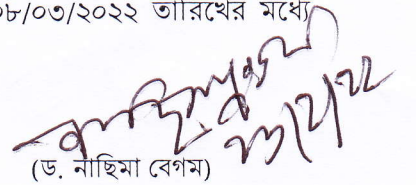 ০৮/০৩/২০২২ তারিখের মধ্যে
(ড. নাছিমা বেগম)